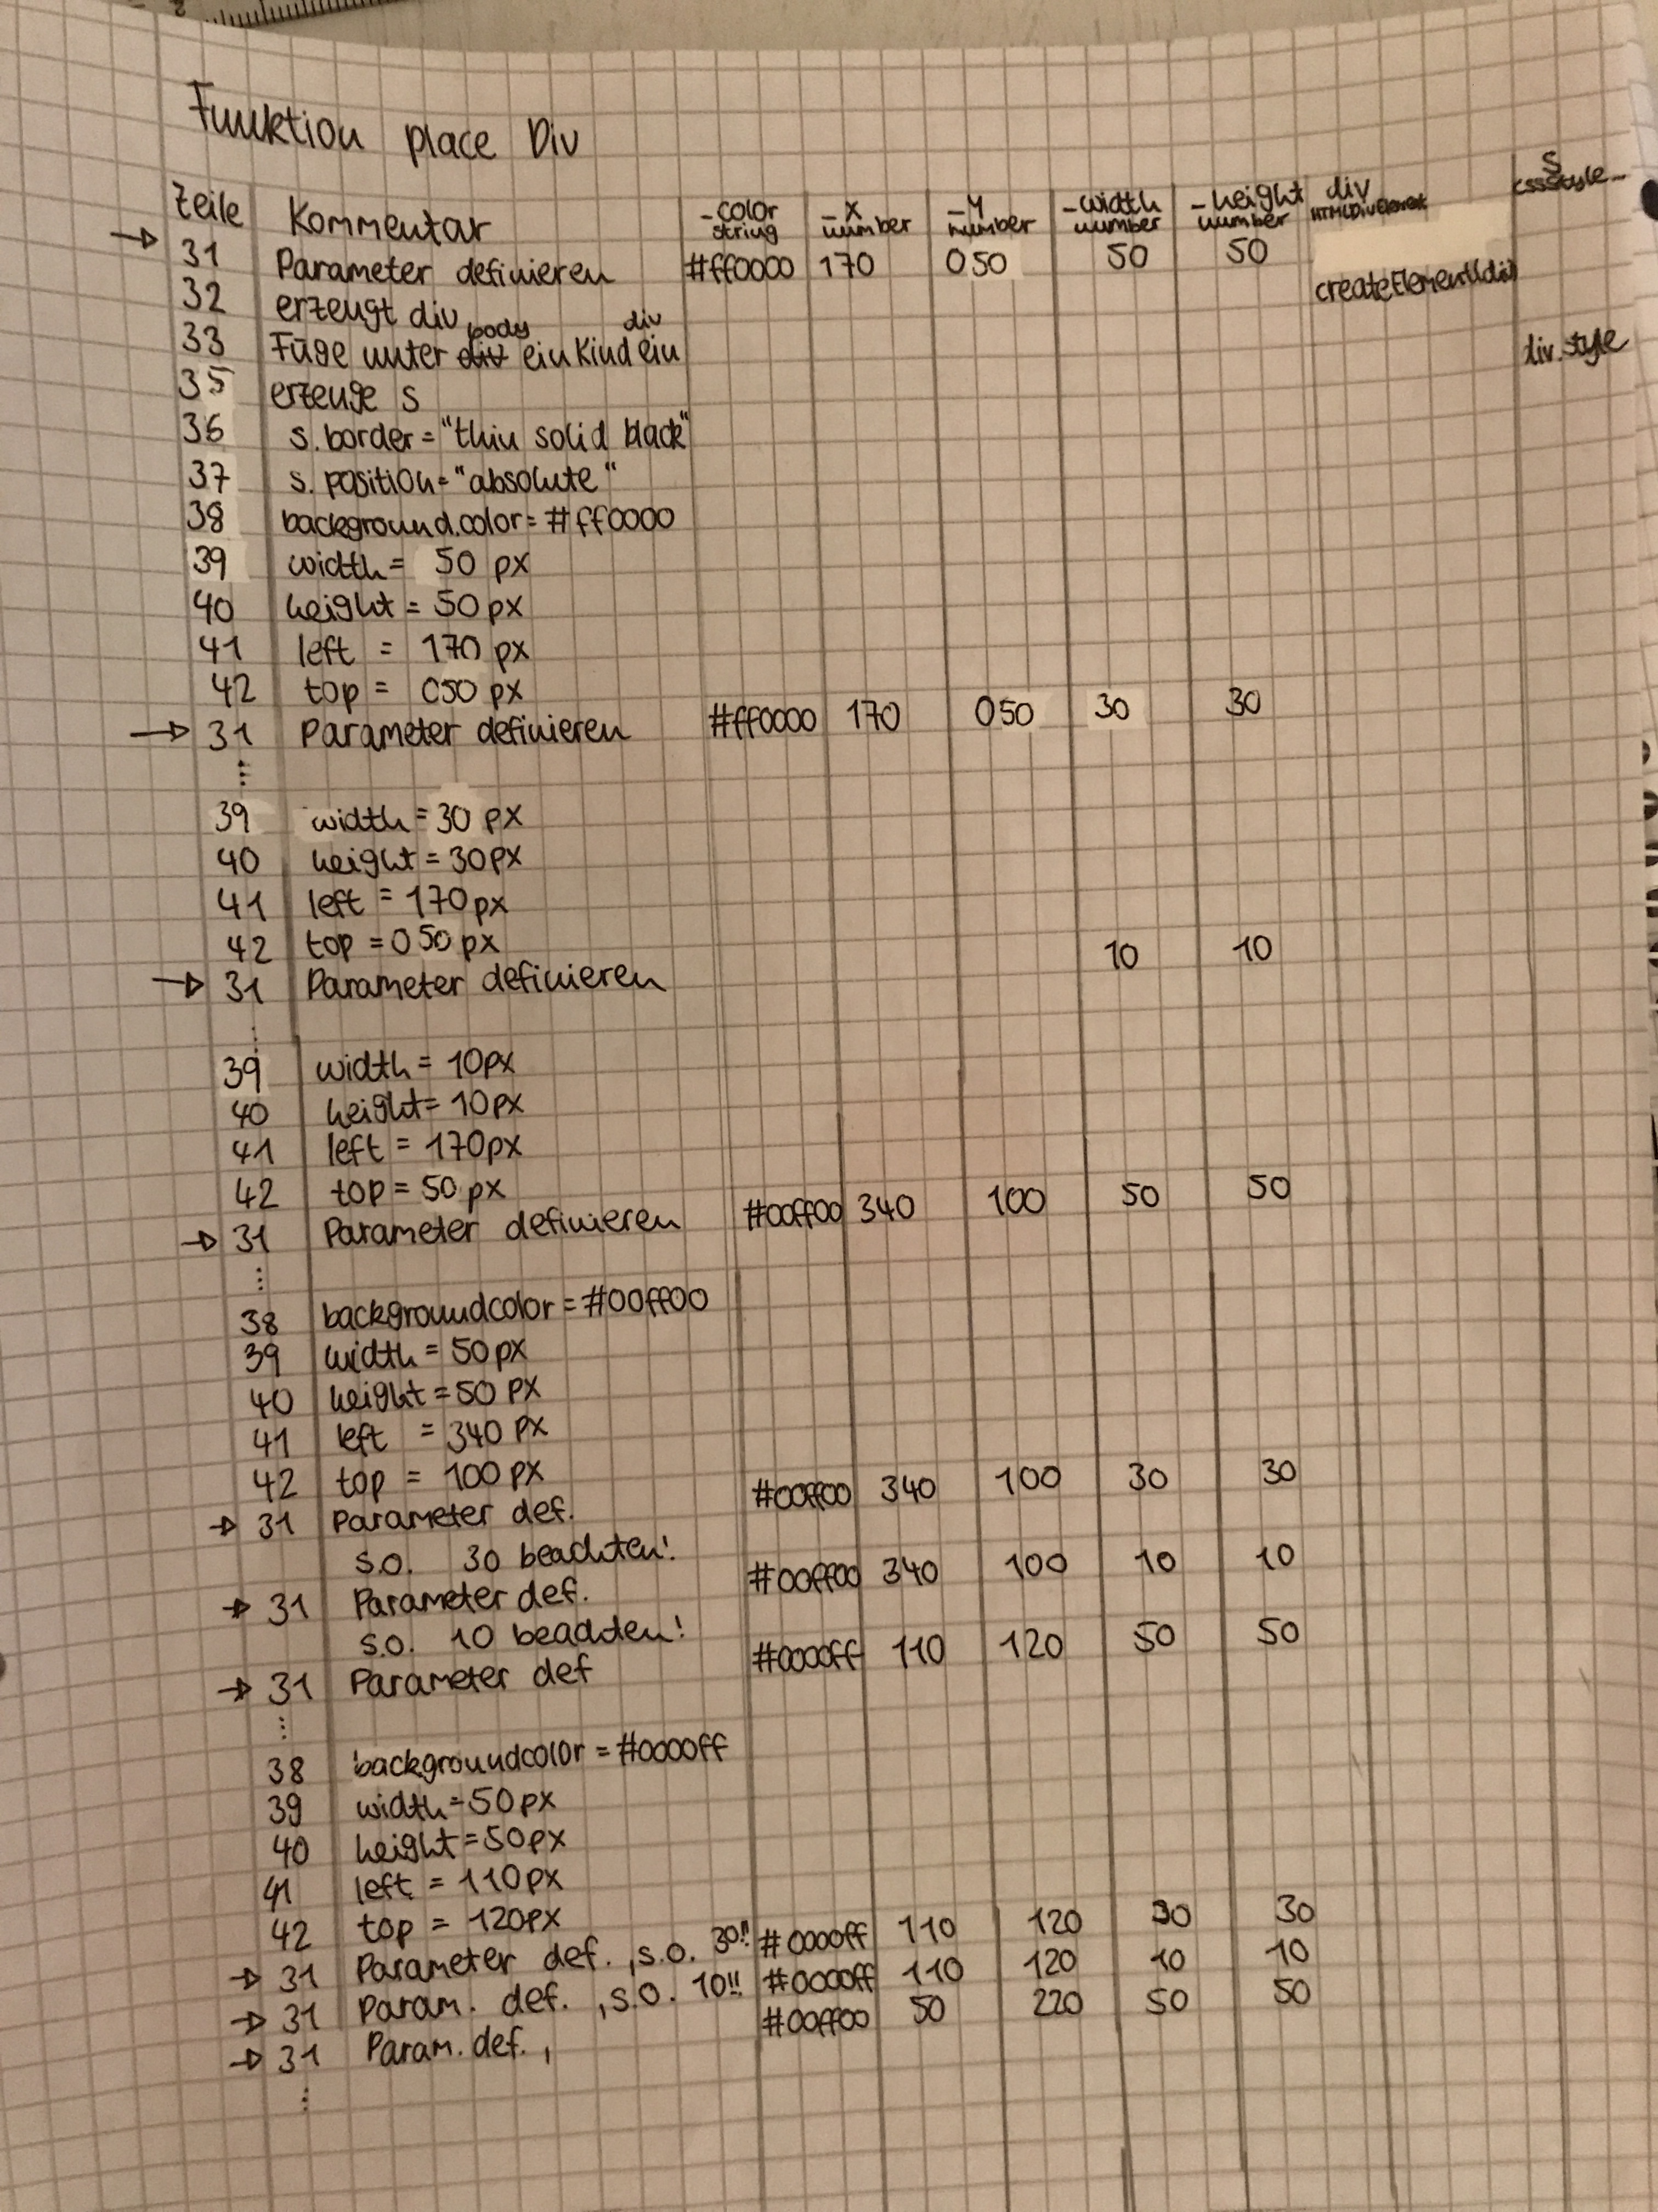 Funktion place Div
Zeile Kommentar _color string _x number _y number _width number _height number div HTMLDivElement s cssStyle_
→ 31 Parameter definieren #ff0000 170 050 50 50
32 erzeugt div createElement(div)
33 Füge unter body ein Kind div ein
35 erzeuge s div.style
36 s.border="thin solid black"
37 s.position="absolute"
38 background.color=#ff0000
39 width= 50 px
40 height = 50px
41 left = 170 px
42 top = 050 px
→ 31 Parameter definieren #ff0000 170 050 30 30
...
39 width = 30 px
40 height = 30px
41 left = 170px
42 top = 050 px
→ 31 Parameter definieren 10 10
...
39 width = 10px
40 height= 10px
41 left = 170px
42 top = 50 px
→ 31 Parameter definieren #00ff00 340 100 50 50
...
38 backgroundcolor = #00ff00
39 width = 50px
40 height = 50 px
41 left = 340 px
42 top = 100 px
→ 31 Parameter def. #00ff00 340 100 30 30
s.o. 30 beachten!
→ 31 Parameter def. #00ff00 340 100 10 10
s.o. 10 beachten!
→ 31 Parameter def #0000ff 110 120 50 50
...
38 backgroundcolor = #0000ff
39 width=50px
40 height=50px
41 left = 110px
42 top = 120px
→ 31 Parameter def. ,s.o. 30!! #0000ff 110 120 30 30
→ 31 Param. def. ,s.o. 10!! #0000ff 110 120 10 10
→ 31 Param. def. , #00ff00 50 220 50 50
...